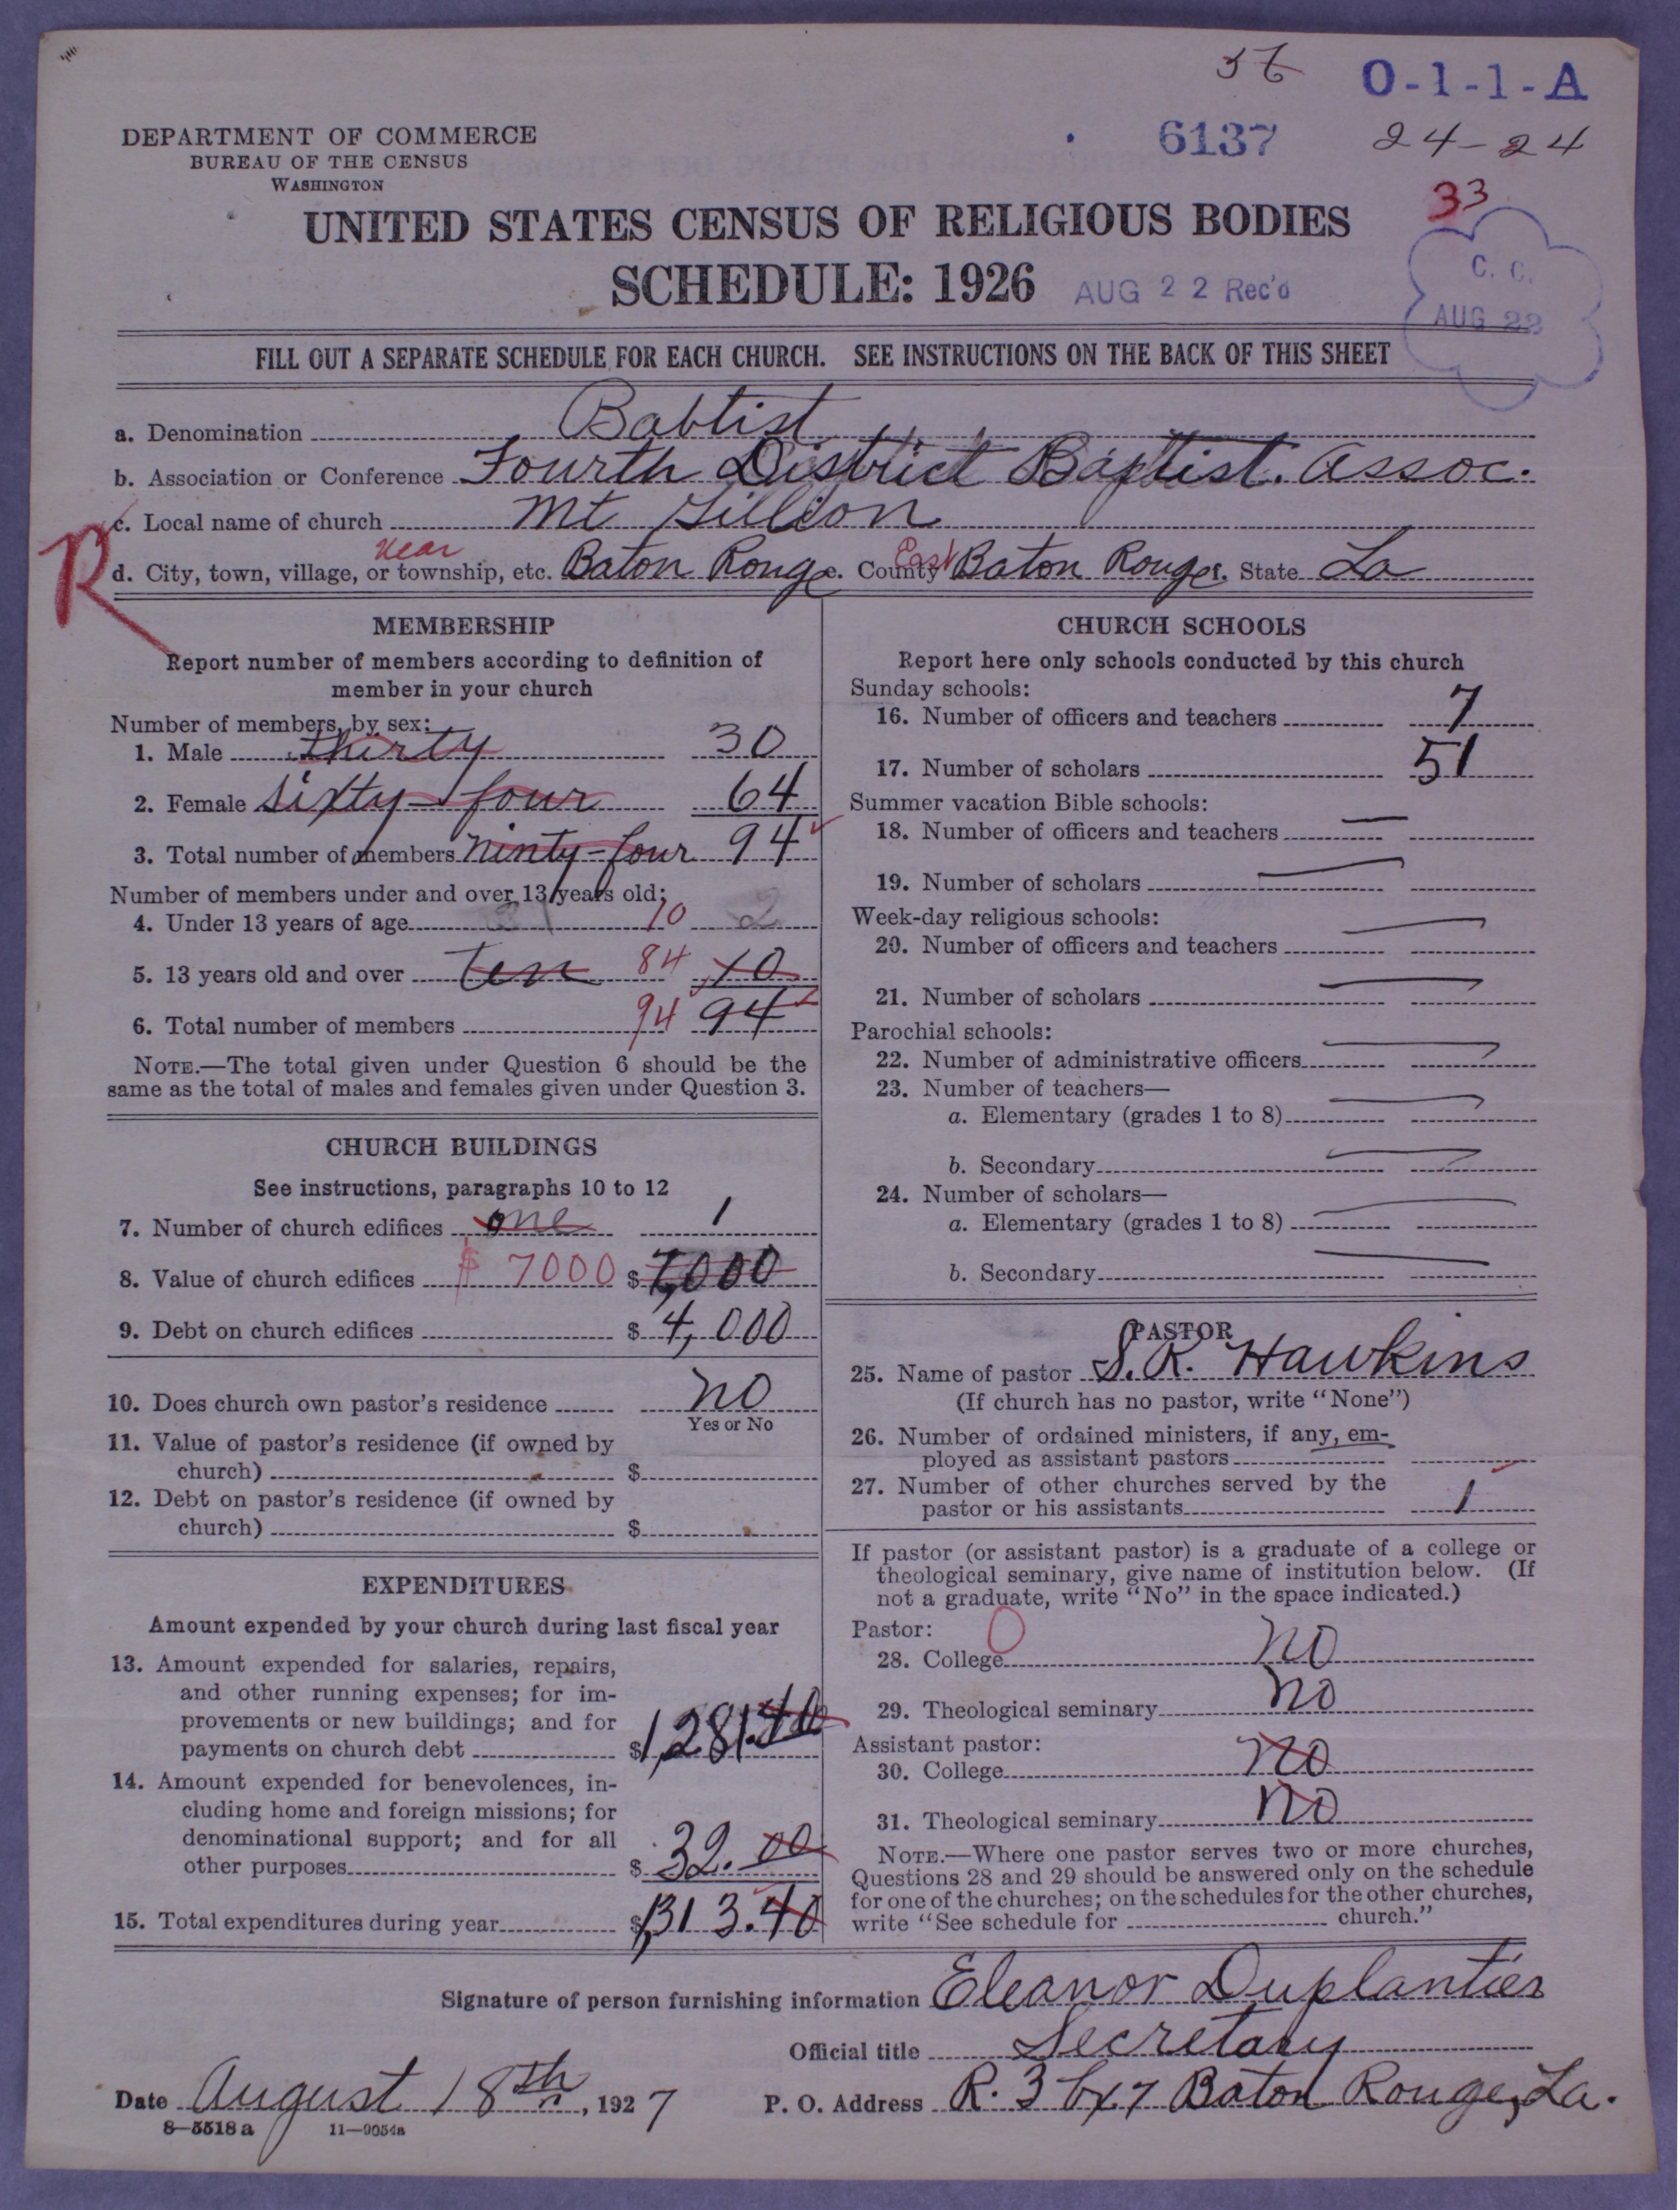 36 O-1-1-A
DEPARTMENT OF COMMERCE
BUREAU OF THE CENSUS
WASHINGTON
6137 24-24
33
UNITED STATES CENSUS OF RELIGIOUS BODIES
SCHEDULE: 1926 AUG 22 Rec'd
C. C.
AUG 22
FILL OUT A SEPARATE SCHEDULE FOR EACH CHURCH. SEE INSTRUCTIONS ON THE BACK OF THIS SHEET
a. Denomination Babtist
b. Association or Conference Fourth District Baptist. Assoc.
c. Local name of church Mt Gillion
R
near East
d. City, town, village, or township, etc. Baton Rouge e. County Baton Rouge f. State La
MEMBERSHIP
Report number of members according to definition of
member in your church
Number of members, by sex:
1. Male thirty 30
2. Female sixty-four 64
3. Total number of members ninty-four 94
Number of members under and over 13 years old:
4. Under 13 years of age 10 2
5. 13 years old and over ten 84 10
6. Total number of members 94 94
NOTE.—The total given under Question 6 should be the
same as the total of males and females given under Question 3.
CHURCH BUILDINGS
See instructions, paragraphs 10 to 12
7. Number of church edifices one 1
8. Value of church edifices $ 7000 $ 7,000
9. Debt on church edifices $ 4,000
10. Does church own pastor's residence no
Yes or No
11. Value of pastor's residence (if owned by
church) $
12. Debt on pastor's residence (if owned by
church) $
EXPENDITURES
Amount expended by your church during last fiscal year
13. Amount expended for salaries, repairs,
and other running expenses; for im-
provements or new buildings; and for
payments on church debt $1,281.40
14. Amount expended for benevolences, in-
cluding home and foreign missions; for
denominational support; and for all
other purposes $ 32.00
15. Total expenditures during year $1,313.40
CHURCH SCHOOLS
Report here only schools conducted by this church
Sunday schools:
16. Number of officers and teachers 7
17. Number of scholars 51
Summer vacation Bible schools:
18. Number of officers and teachers —
19. Number of scholars —
Week-day religious schools:
20. Number of officers and teachers —
21. Number of scholars —
Parochial schools:
22. Number of administrative officers —
23. Number of teachers—
a. Elementary (grades 1 to 8) —
b. Secondary —
24. Number of scholars—
a. Elementary (grades 1 to 8) —
b. Secondary —
PASTOR
25. Name of pastor S. R. Hawkins
(If church has no pastor, write "None")
26. Number of ordained ministers, if any, em-
ployed as assistant pastors
27. Number of other churches served by the
pastor or his assistants 1
If pastor (or assistant pastor) is a graduate of a college or
theological seminary, give name of institution below. (If
not a graduate, write "No" in the space indicated.)
Pastor: 0
28. College no
29. Theological seminary no
Assistant pastor:
30. College no
31. Theological seminary no
NOTE.—Where one pastor serves two or more churches,
Questions 28 and 29 should be answered only on the schedule
for one of the churches; on the schedules for the other churches,
write "See schedule for church."
Signature of person furnishing information Eleanor Duplantier
Official title Secretary
Date August 18th, 1927 P. O. Address R. 3 bx 7 Baton Rouge, La.
8—5518 a 11—9054a